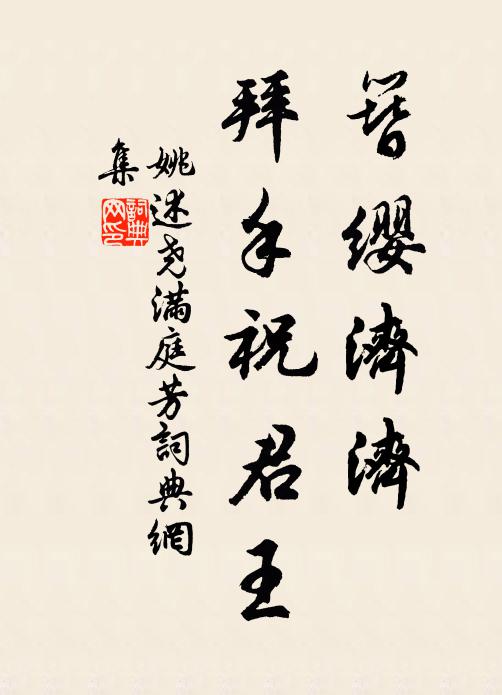 簪缨濟濟
拜手祝君王
姚述尧滿庭芳詞典網
集
詞典网印